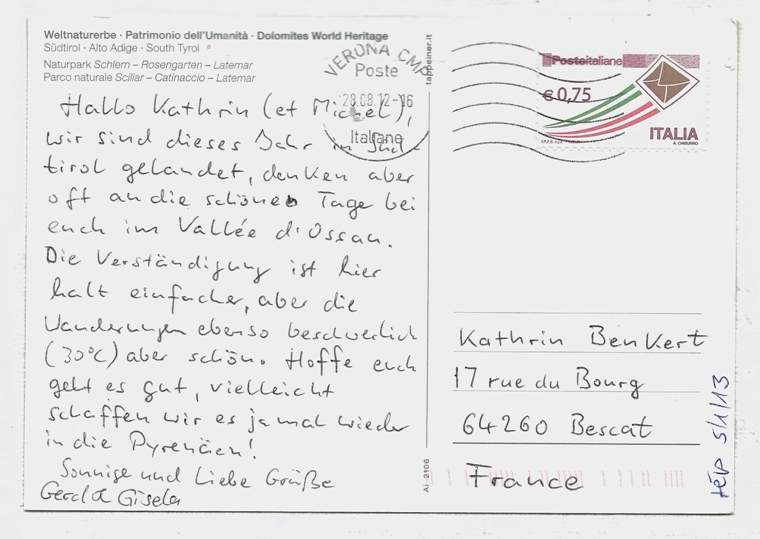 Weltnaturerbe · Patrimonio dell'Umanità · Dolomites World Heritage
Südtirol · Alto Adige · South Tyrol ®
Naturpark Schlern – Rosengarten – Latemar
Parco naturale Sciliar – Catinaccio – Latemar
Hallo Kathrin (et Michel),
wir sind dieses Jahr in Süd-
tirol gelandet, denken aber
oft an die schönen Tage bei
euch im Vallée d'Ossau.
Die Verständigung ist hier
halt einfacher, aber die
Wanderungen ebenso beschwerlich
(30°C) aber schön. Hoffe euch
geht es gut, vielleicht
schaffen wir es ja mal wieder
in die Pyrenäen!
Sonnige und Liebe Grüße
Gerd & Gisela
tappeiner.it
AI-2106
VERONA CMP
Poste
28.08.12-16
Italiane
Posteitaliane
€ 0,75
ITALIA
Kathrin Benkert
17 rue du Bourg
64260 Bescat
France
rép 5/1/13